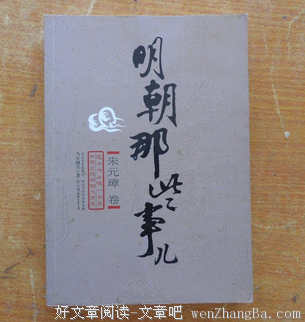 明朝那些事儿
【朱元璋 卷】
好文章阅读-文章吧 wenZhangBa.com